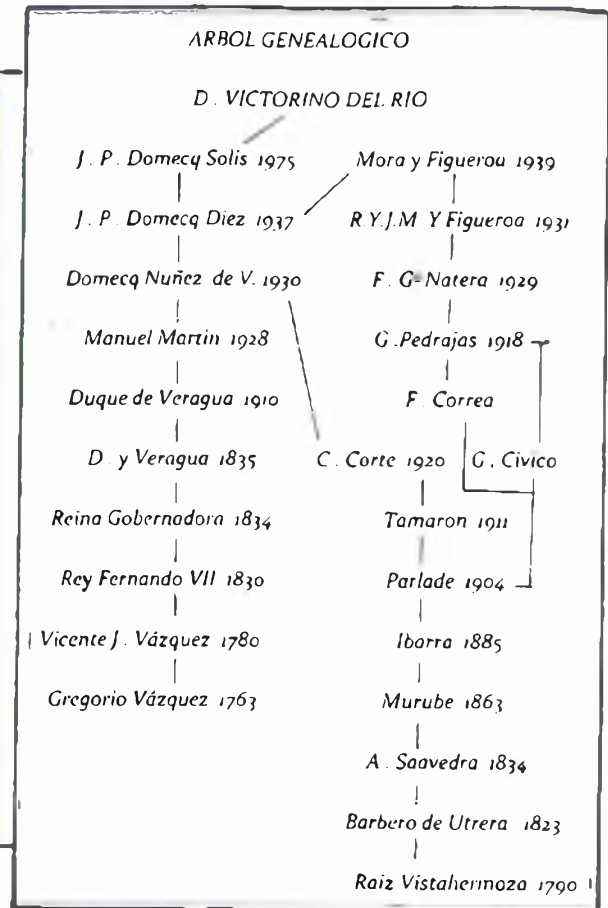 ARBOL GENEALOGICO
D. VICTORINO DEL RIO
J. P. Domecq Solis 1975
J. P. Domecq Diez 1937
Domecq Nuñez de V. 1930
Manuel Martin 1928
Duque de Veragua 1910
D. y Veragua 1835
Reina Gobernadora 1834
Rey Fernando VII 1830
Vicente J. Vázquez 1780
Gregorio Vázquez 1763
Mora y Figueroa 1939
R.Y.J.M Y Figueroa 1931
F. G-Natera 1929
G.Pedrajas 1918
F. Correa
G. Civico
C. Corte 1920
Tamaron 1911
Parlade 1904
Ibarra 1885
Murube 1863
A. Saavedra 1834
Barbero de Utrera 1823
Raiz Vistahermoza 1790